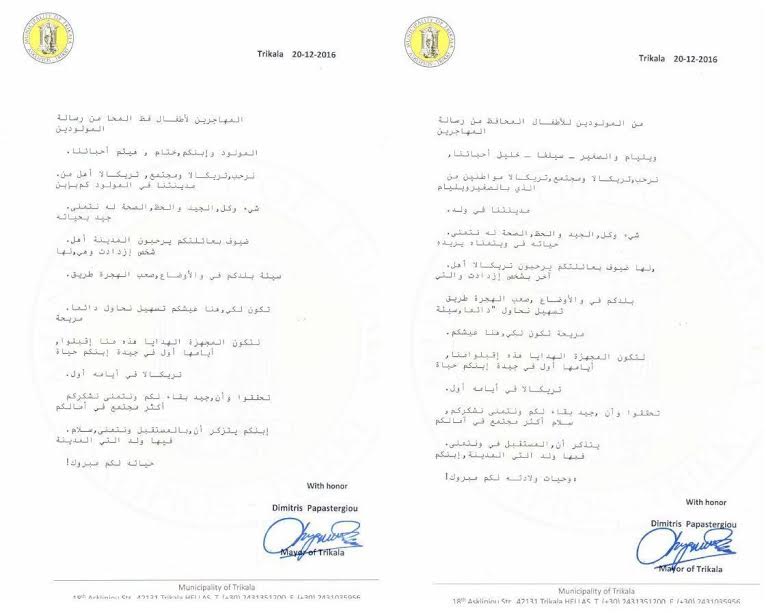 MUNICIPALITY OF TRIKALA
Trikala 20-12-2016
المهاجرين لأطفال فظ المحا من رسالة
المولودين
المولود وإبنكم,ختام , هيثم أحبائنا.
نرحب,تريكالا ومجتمع, تريكالا أهل من.
مدينتنا في المولود كم
شيء وكل,الجيد والحظ,الصحة له نتمنى.
جيد بحياته
ضيوف بعائلتكم يرحبون المدينة أهل.
شخص إزدادت وهي,لها
سيئة بلدكم في والأوضاع,صعب الهجرة طريق.
تكون لكي,هنا عيشكم تسهيل نحاول دائما.
مريحة
لتكون المجهزة الهدايا هذه منا إقبلوا,
أيامها أول في جيدة إبنكم حياة
تريكالا في أيامه أول.
تحققوا وأن,جيد بقاء لكم ونتمنى نشكركم
أكثر مجتمع في أمالكم
إبنكم يتزكر أن,بالمستقبل ونتمنى,سلام.
فيها ولد التي المدينة
حياته لكم مبروك!
With honor
Dimitris Papastergiou
Mayor of Trikala
Municipality of Trikala
18th Asklipiou Str. 42131 Trikala HELLAS T. (+30) 2431351200 F. (+30) 2431035956
MUNICIPALITY OF TRIKALA
Trikala 20-12-2016
من المولودين للأطفال المحافظ من رسالة
المهاجرين
ويليام والصغير _ سيلفا _ خليل أحبائنا,
نرحب,تريكالا ومجتمع,تريكالا مواطنين من
الذي بالصغيرويليام
مدينتنا في ولد.
شيء وكل,الجيد والحظ,الصحة له نتمنى.
حياته في ويتمناه يريده
,لها ضيوف بعائلتكم يرحبون تريكالا أهل.
آخر بشخص إزدادت والتي
بلدكم في والأوضاع ,صعب الهجرة طريق
تسهيل نحاول "دائما,سيئة
مريحة تكون لكي,هنا عيشكم.
لتكون المجهزة الهدايا هذه إقبلوامنا,
أيامها أول في جيدة إبنكم حياة
تريكالا في أيامه أول.
تحققوا وأن ,جيد بقاء لكم ونتمنى نشكركم,
سلام أكثر مجتمع في أمالكم
يتذكر أن,المستقبل في ونتمنى.
فيها ولد التي المدينة,إبنكم
وحيات ولادته لكم مبروك!
With honor
Dimitris Papastergiou
Mayor of Trikala
Municipality of Trikala
18th Asklipiou Str. 42131 Trikala HELLAS T. (+30) 2431351200 F. (+30) 2431035956